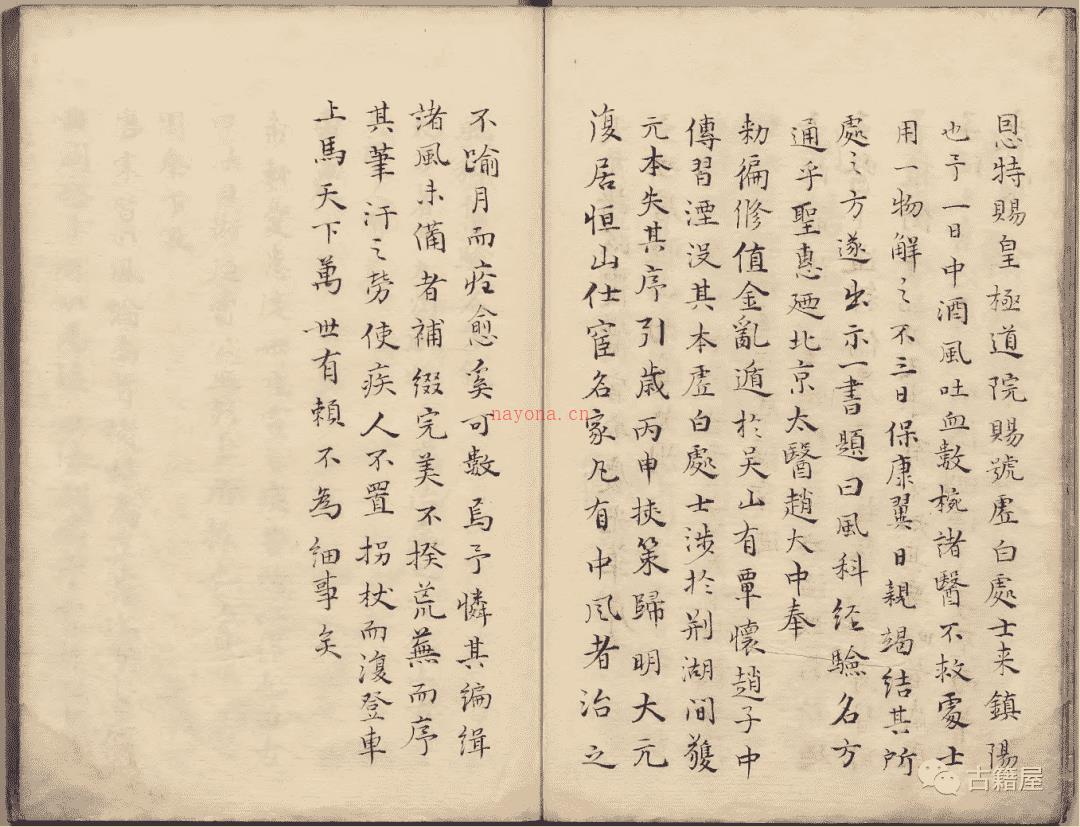 恩特賜皇極道院賜號虛白處士来鎮陽
也予一日中酒風吐血數椀諸醫不救處士
用一物解之不三日保康翼日親竭結其所
處之方遂出示一書題曰風科经驗名方
通乎聖惠廼北京太醫趙大中奉
勑編修值金亂遁於吴山有覃懷趙子中
傳習湮没其本虛白處士涉於荆湖间獲
元本失其序引歲丙申挟策歸明大元
復居恒山仕宦名家凡有中风者治之
不踰月而痊愈奚可數焉予憐其编缉
諸風未備者補缀完美不揆荒蕪而序
其筆汗之勞使疾人不置拐杖而復登車
上馬天下萬世有賴不為细事矣
nayona.cn
古籍屋